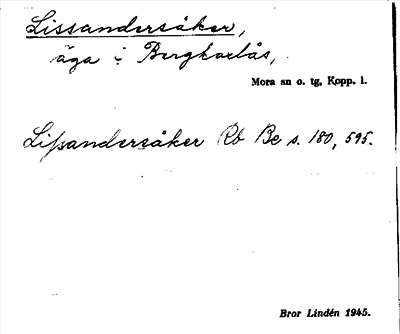 Lissandersåker,
äga i Bergkarlås,
Mora sn o. tg, Kopp. l.
Lissandersåker Rb Be s. 180, 595.
Bror Lindén 1945.